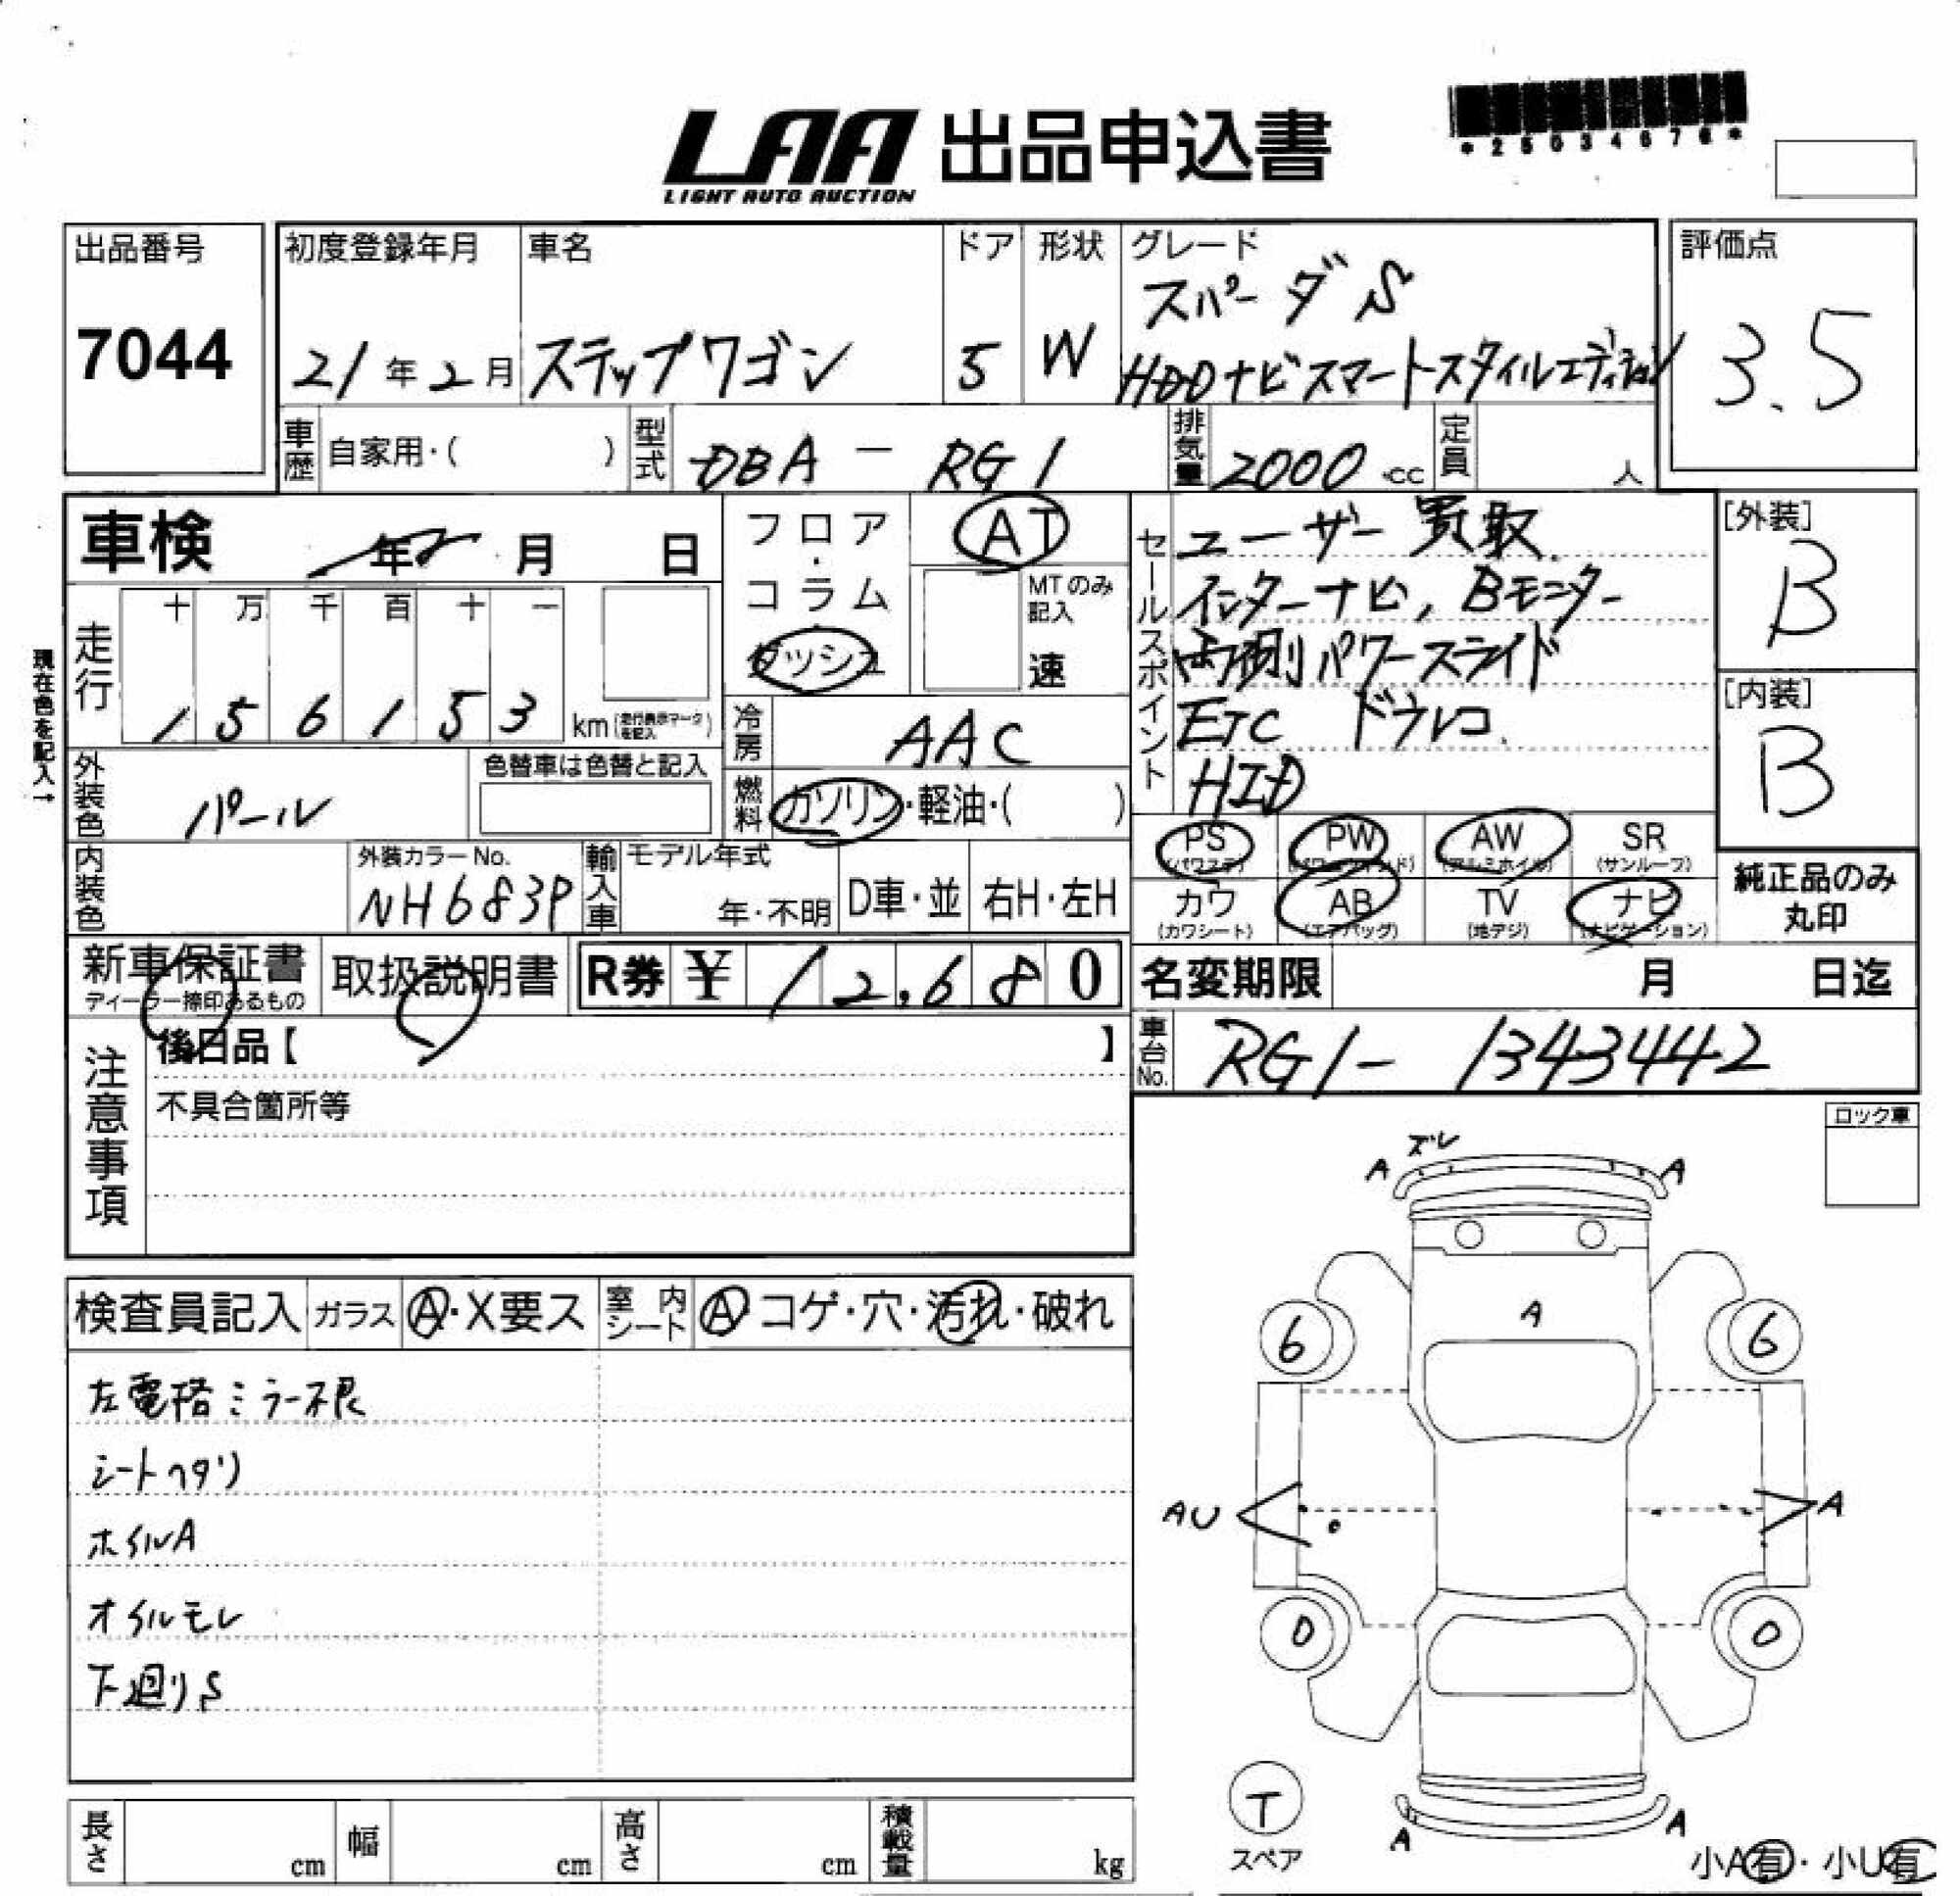 LAA 出品申込書
LIGHT AUTO AUCTION
*25034676*
出品番号
7044
初度登録年月
21年2月
車名
ステップワゴン
ドア
5
形状
W
グレード
スパーダS
HDDナビスマートスタイルエディション
評価点
3.5
車歴
自家用・( )
型式
DBA - RG1
排気量
2000 cc
定員
人
車検
年 月 日
フロア・コラム・ダッシュ
AT
MTのみ記入
速
走行
十 万 千 百 十 一
1 5 6 1 5 3
km (走行表示マークを記入)
現在色を記入→
冷房
AAC
外装色
パール
色替車は色替と記入
燃料
ガソリン・軽油・( )
内装色
外装カラーNo.
NH683P
輸入車
モデル年式
年・不明
D車・並
右H・左H
セールスポイント
ユーザー買取
インターナビ, Bモニター
両側パワースライド
ETC ドウレコ
HID
[外装]
B
[内装]
B
PS (パワステ)
PW (パワーウィンド)
AW (アルミホイル)
SR (サンルーフ)
カワ (カワシート)
AB (エアバッグ)
TV (地デジ)
ナビ (ナビゲーション)
純正品のみ
丸印
新車保証書
ディーラー捺印あるもの
取扱説明書
R券 ¥ 12,680
名変期限 月 日迄
車台No.
RG1- 1343442
注意事項
後日品【 】
不具合箇所等
ロック車
検査員記入
ガラス
A・X要ス
室内シート
A・コゲ・穴・汚れ・破れ
左電格ミラー不良
シートヘタリ
ホイルA
オイルモレ
下廻りS
ズレ
A
A
A
6
6
AU
A
0
0
T
スペア
A
A
小A有・小U有
長さ cm
幅 cm
高さ cm
積載量 kg